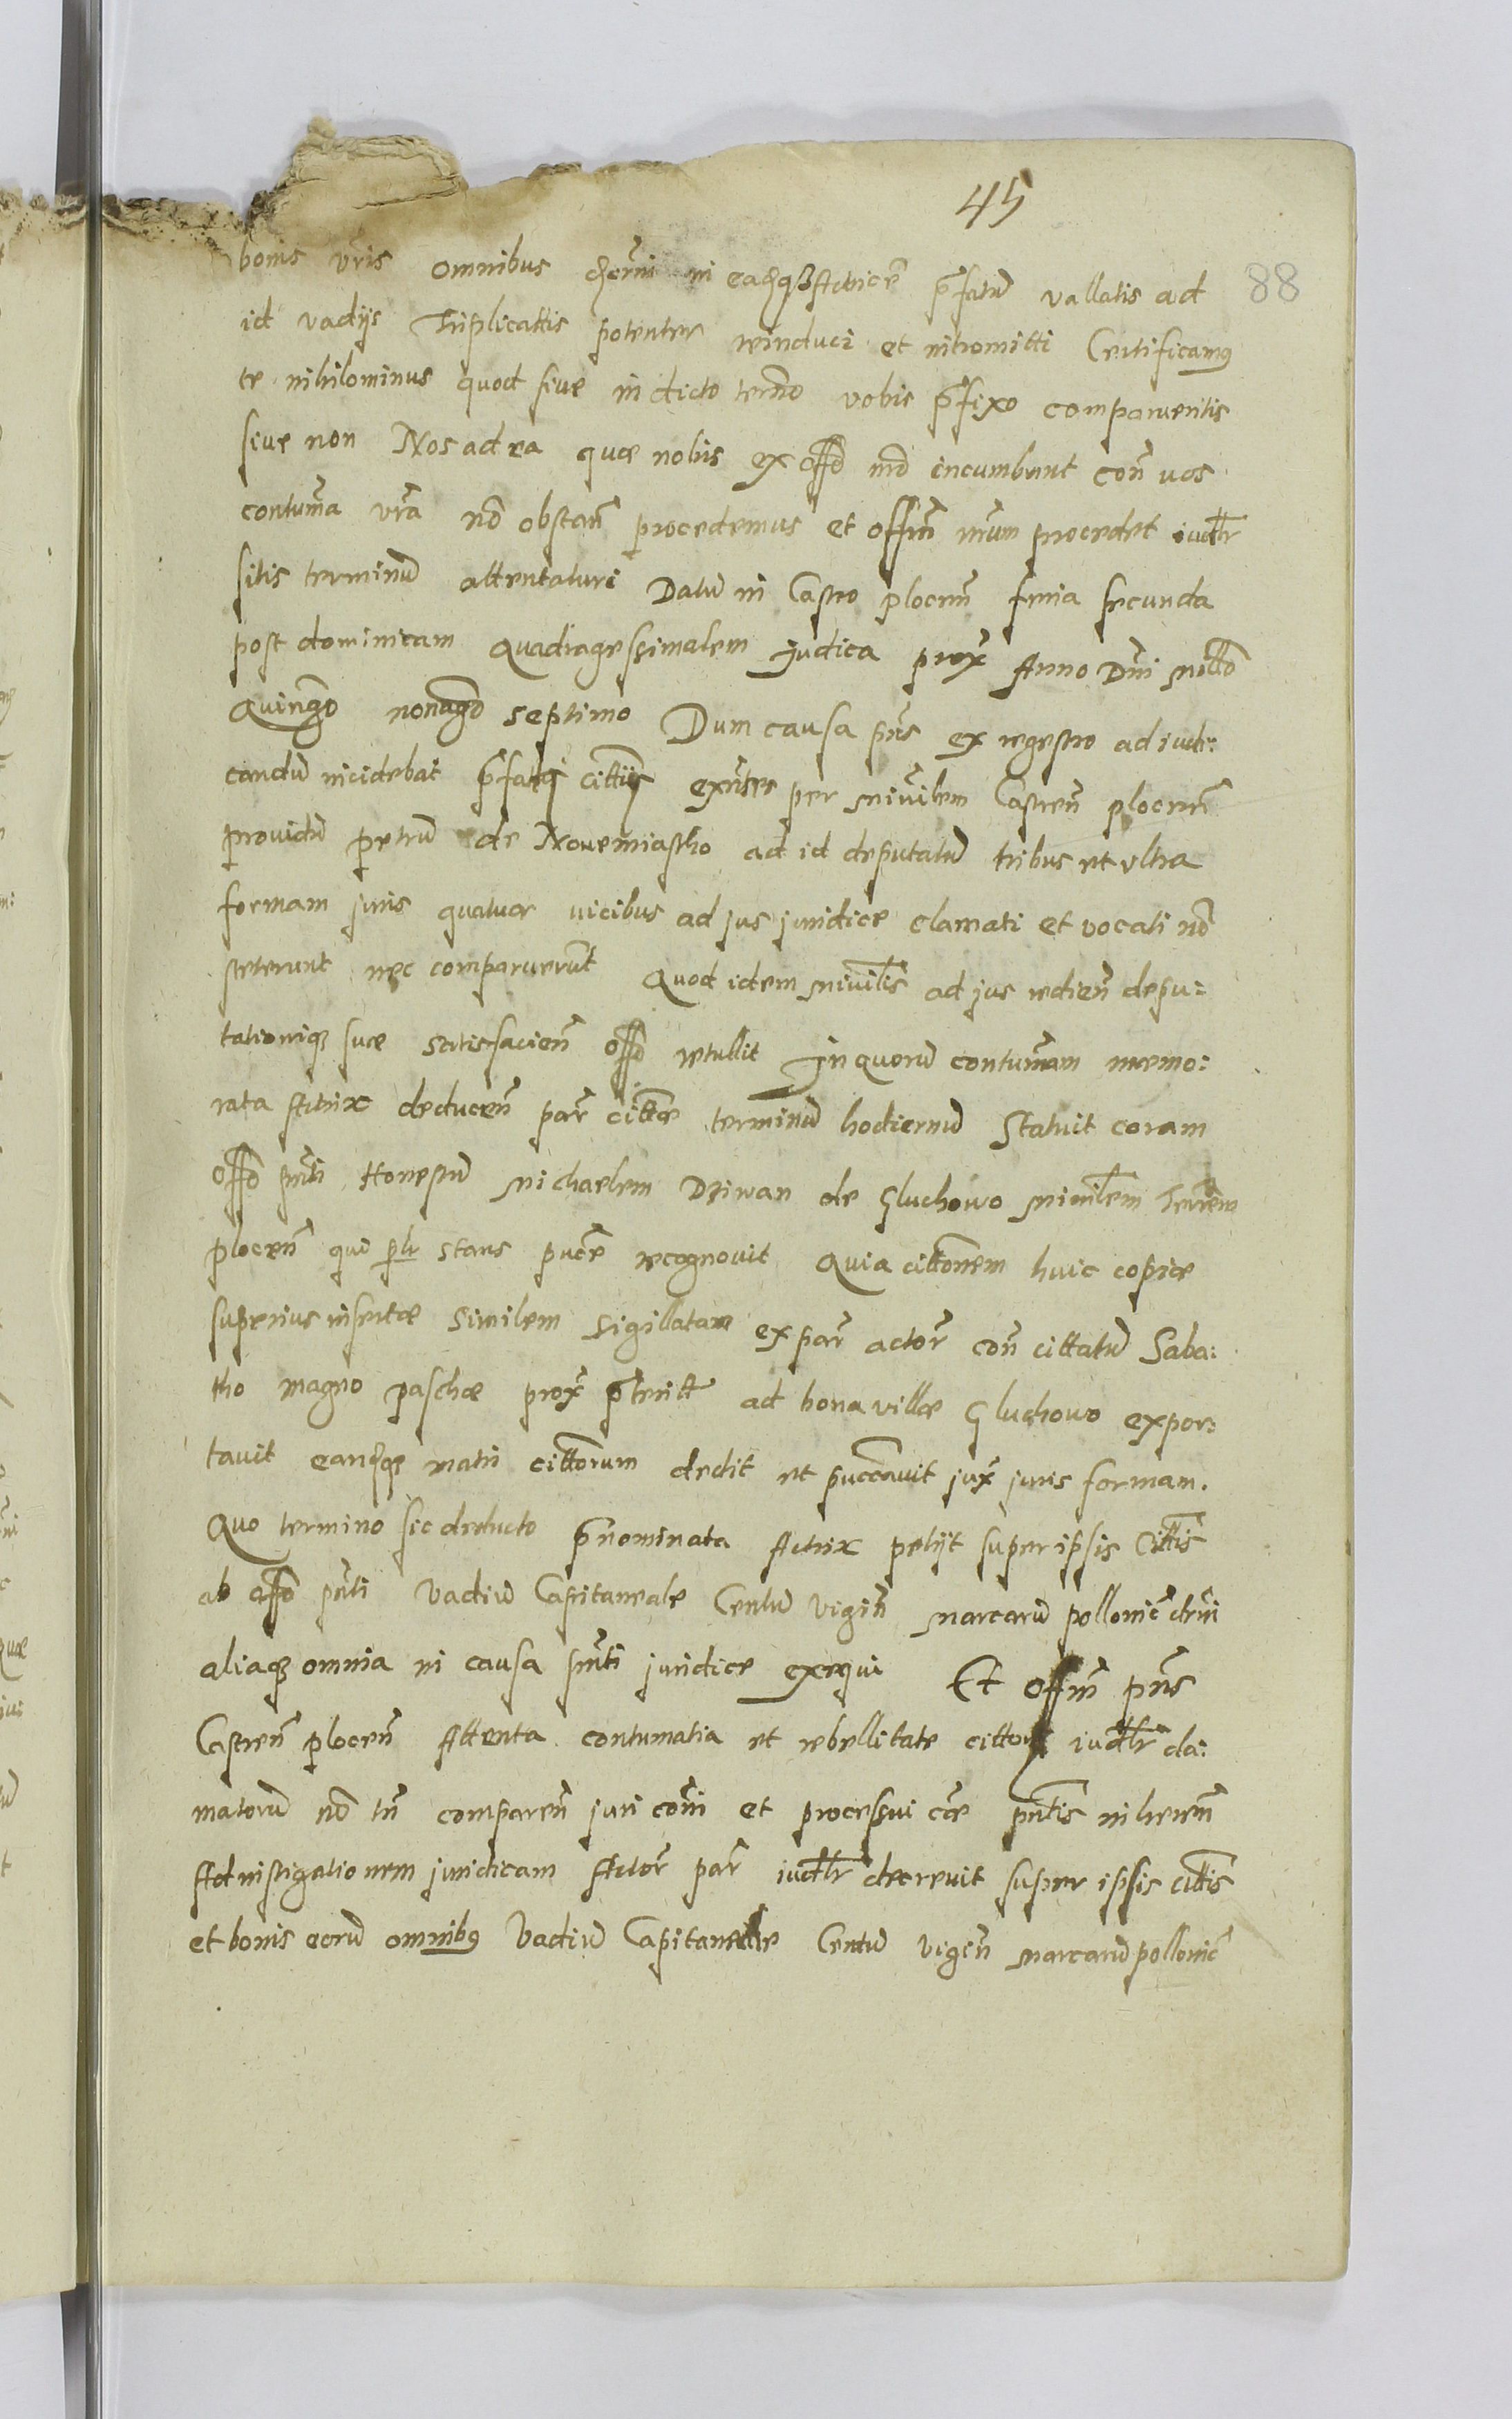 45
88
bonis vris omnibus decerni in easq3 Actricē p̄fatū vallatis ad
id vadijs Triplicattis potenter reinduci et intromitti Certificamus
te nihilominus quod siue in dicto termō vobis p̄fixo comparueritis
siue non Nos ad ea quæ nobis ex offō nrō incumbunt con̄ uos
contuma vrā nō obstan̄ procedemus et offm̄ nrum procedet iudr̄
sitis terminū attentaturi Datū in Castro plocen̄ feria secunda
post dominicam Quadragessimalem Judica prox̄ Anno Dn̄i mill̄o
Quingō nonagō septimo Dum causa pn̄s ex regestro ad iudi:
candū incidebat p̄fati cittī exn̄tes per Minr̄lem Castren̄ plocen̄
prouidū petrū de Nouemiastho ad id deputatū tribus et vltra
formam juris quatuor uicibus ad jus juridice clamati et vocati nō
steterunt nec comparuerūt Quod idem Ministr̄lis ad jus redien̄ depu:
tationiq3 suæ satisfacien̄ offō retullit In quorū contumam memo:
rata Actrix deducen̄ par̄ cittæ terminū hodiernū Statuit coram
offō pn̄ti Honestū Michaelem Dziwan de Gluchowo Minir̄lem Terrem
plocen̄ qui plr̄ stans pucē recognouit Quia cittōnem huic copiæ
superius insertæ similem sigillatam ex par̄ actor̄ con̄ cittatū Saba:
tho magno paschæ prox̄ p̄terit̄ ad bona villæ Gluchowo expor:
tauit eandq3 matri cittōrum dedit et puccauit jux̄ juris formam.
Quo termino sic deducto p̄nominata Actrix petijt super ipsis Cittis
ab offō pn̄ti Vadiū Capitaneale Centū vigin̄ marcarū pollonic̄ decrni
aliaq3 omnia in causa pn̄ti juridice exequi Et offm̄ pn̄s
Castren̄ plocen̄ Attenta contumatia et rebellitate cittorū iudr̄ cla:
matorū nō tn̄ comparen̄ juri com̄i et processui cæ pn̄tis inheren̄
Ad instigationem juridicam Actor̄ par̄ iudr̄ decreuit super ipsis cittis
et bonis eorū omnibus Vadiū Capitaneale Centū vigin̄ marcarū pollonic̄